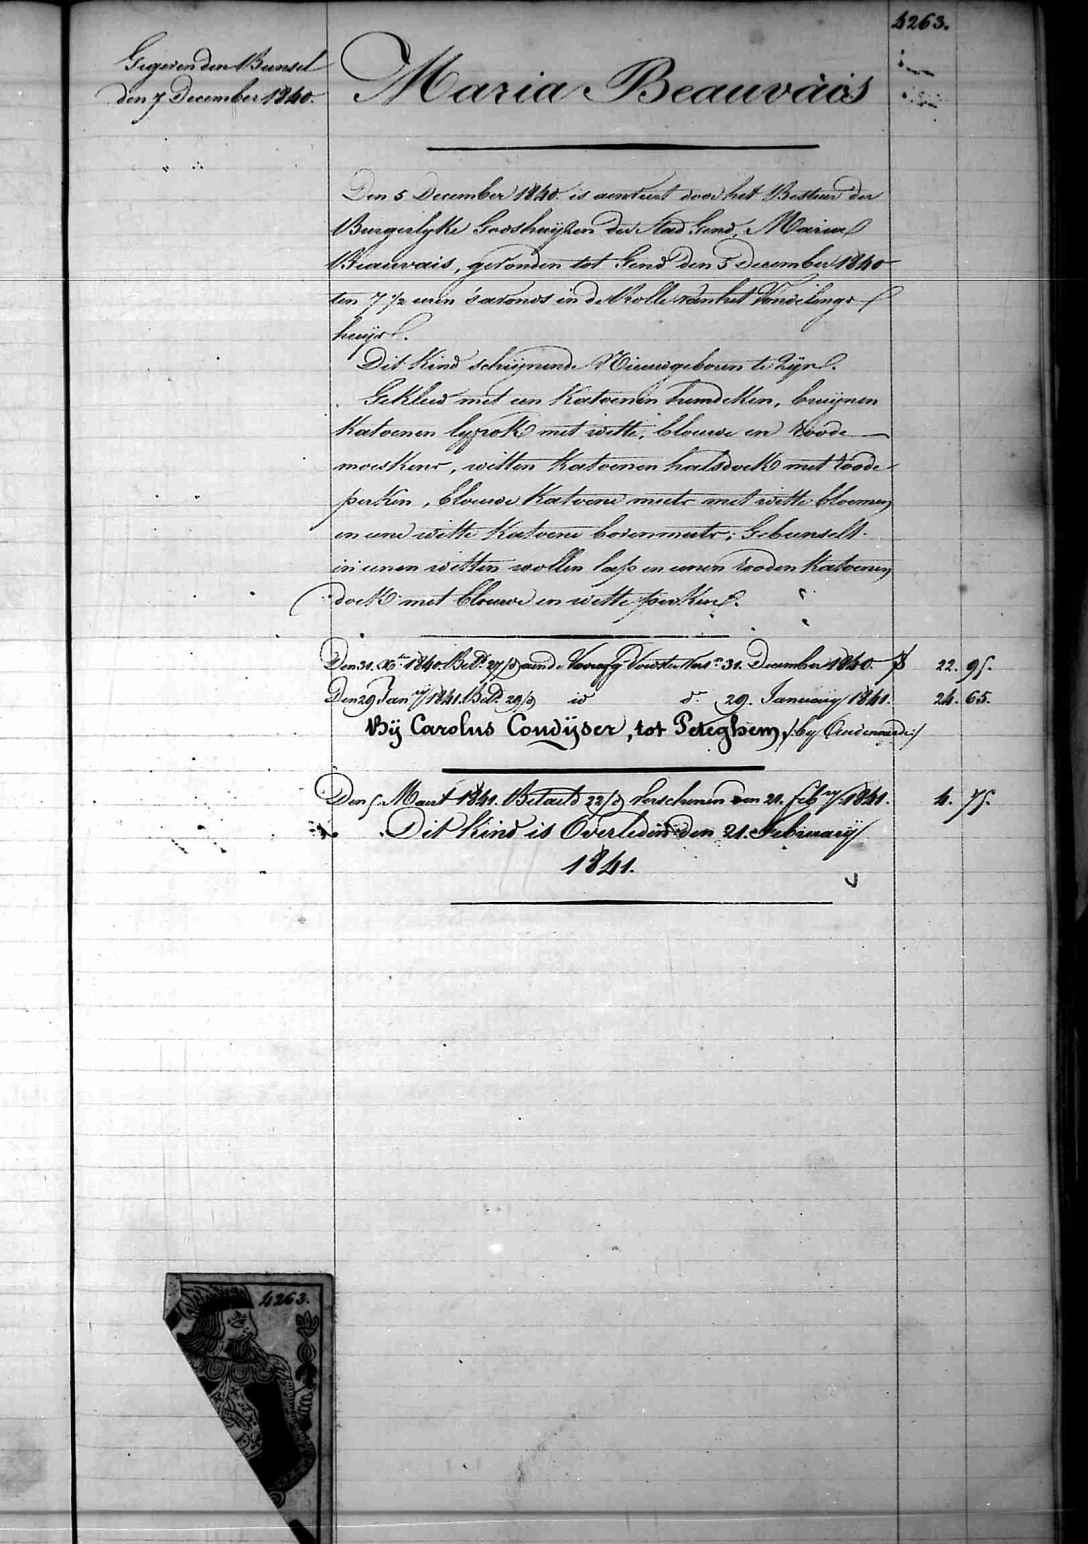 4263.
Gegeven den Bunsel
den 7 December 1840.
Maria Beauvais
Den 5 December 1840 is aenveert door het Bestuer der
Burgerlyke Godshuijzen der Stad Gend, Maria
Beauvais, gevonden tot Gend den 5 December 1840
ten 7 1/2 uren 's avonds in de Rolle van het Vondelings
huijs.
Dit Kind schijnende Nieuwgeboren te zijn.
Gekleed met een Katoenen hemdeken, bruijnen
Katoenen lyfrok met witte, blouwe en roode
moeskens, witten Katoenen halsdoek met roode
perken, blouwe Katoene muts met witte bloemen
en eene witte Katoene bovenmuts; Gebunselt
in eenen witten wollen lap en eenen rooden Katoenen
doek met blouwe en witte perken.
Den 31. Xber 1840. Betd. 27/d aen de Voorsz Voedster Vers. 31. December 1840 22. 95.
Den 29 Janry 1841. Betd. 29/d id do 29. January 1841. 24. 65.
Bij Carolus Coudijser, tot Peteghem /:by Audenaerde:/
Den 5 Maert 1841. Betaeld 22/d Verschenen den 21. Febry 1841. 4. 75.
Dit kind is Overleden den 21. February
1841.
4263.